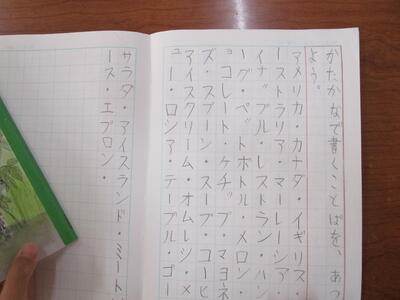 かたかなで書くことばを、あつ
よう。
アメリカ・カナダ・イギリス・
ーストラリア・マーレーシア・
イナップル・レストラン・ハン
ハグ・ペットボトル・メロン・
ョコレート・ケチップ・マヨネ
ズ・スプーン・スープ・コーヒ
アイスクリーム・オムレシ・メ
ュー・ロシア・テーブル・ゴー
サラダ・アイスランド・ミート
ース・エプロン・